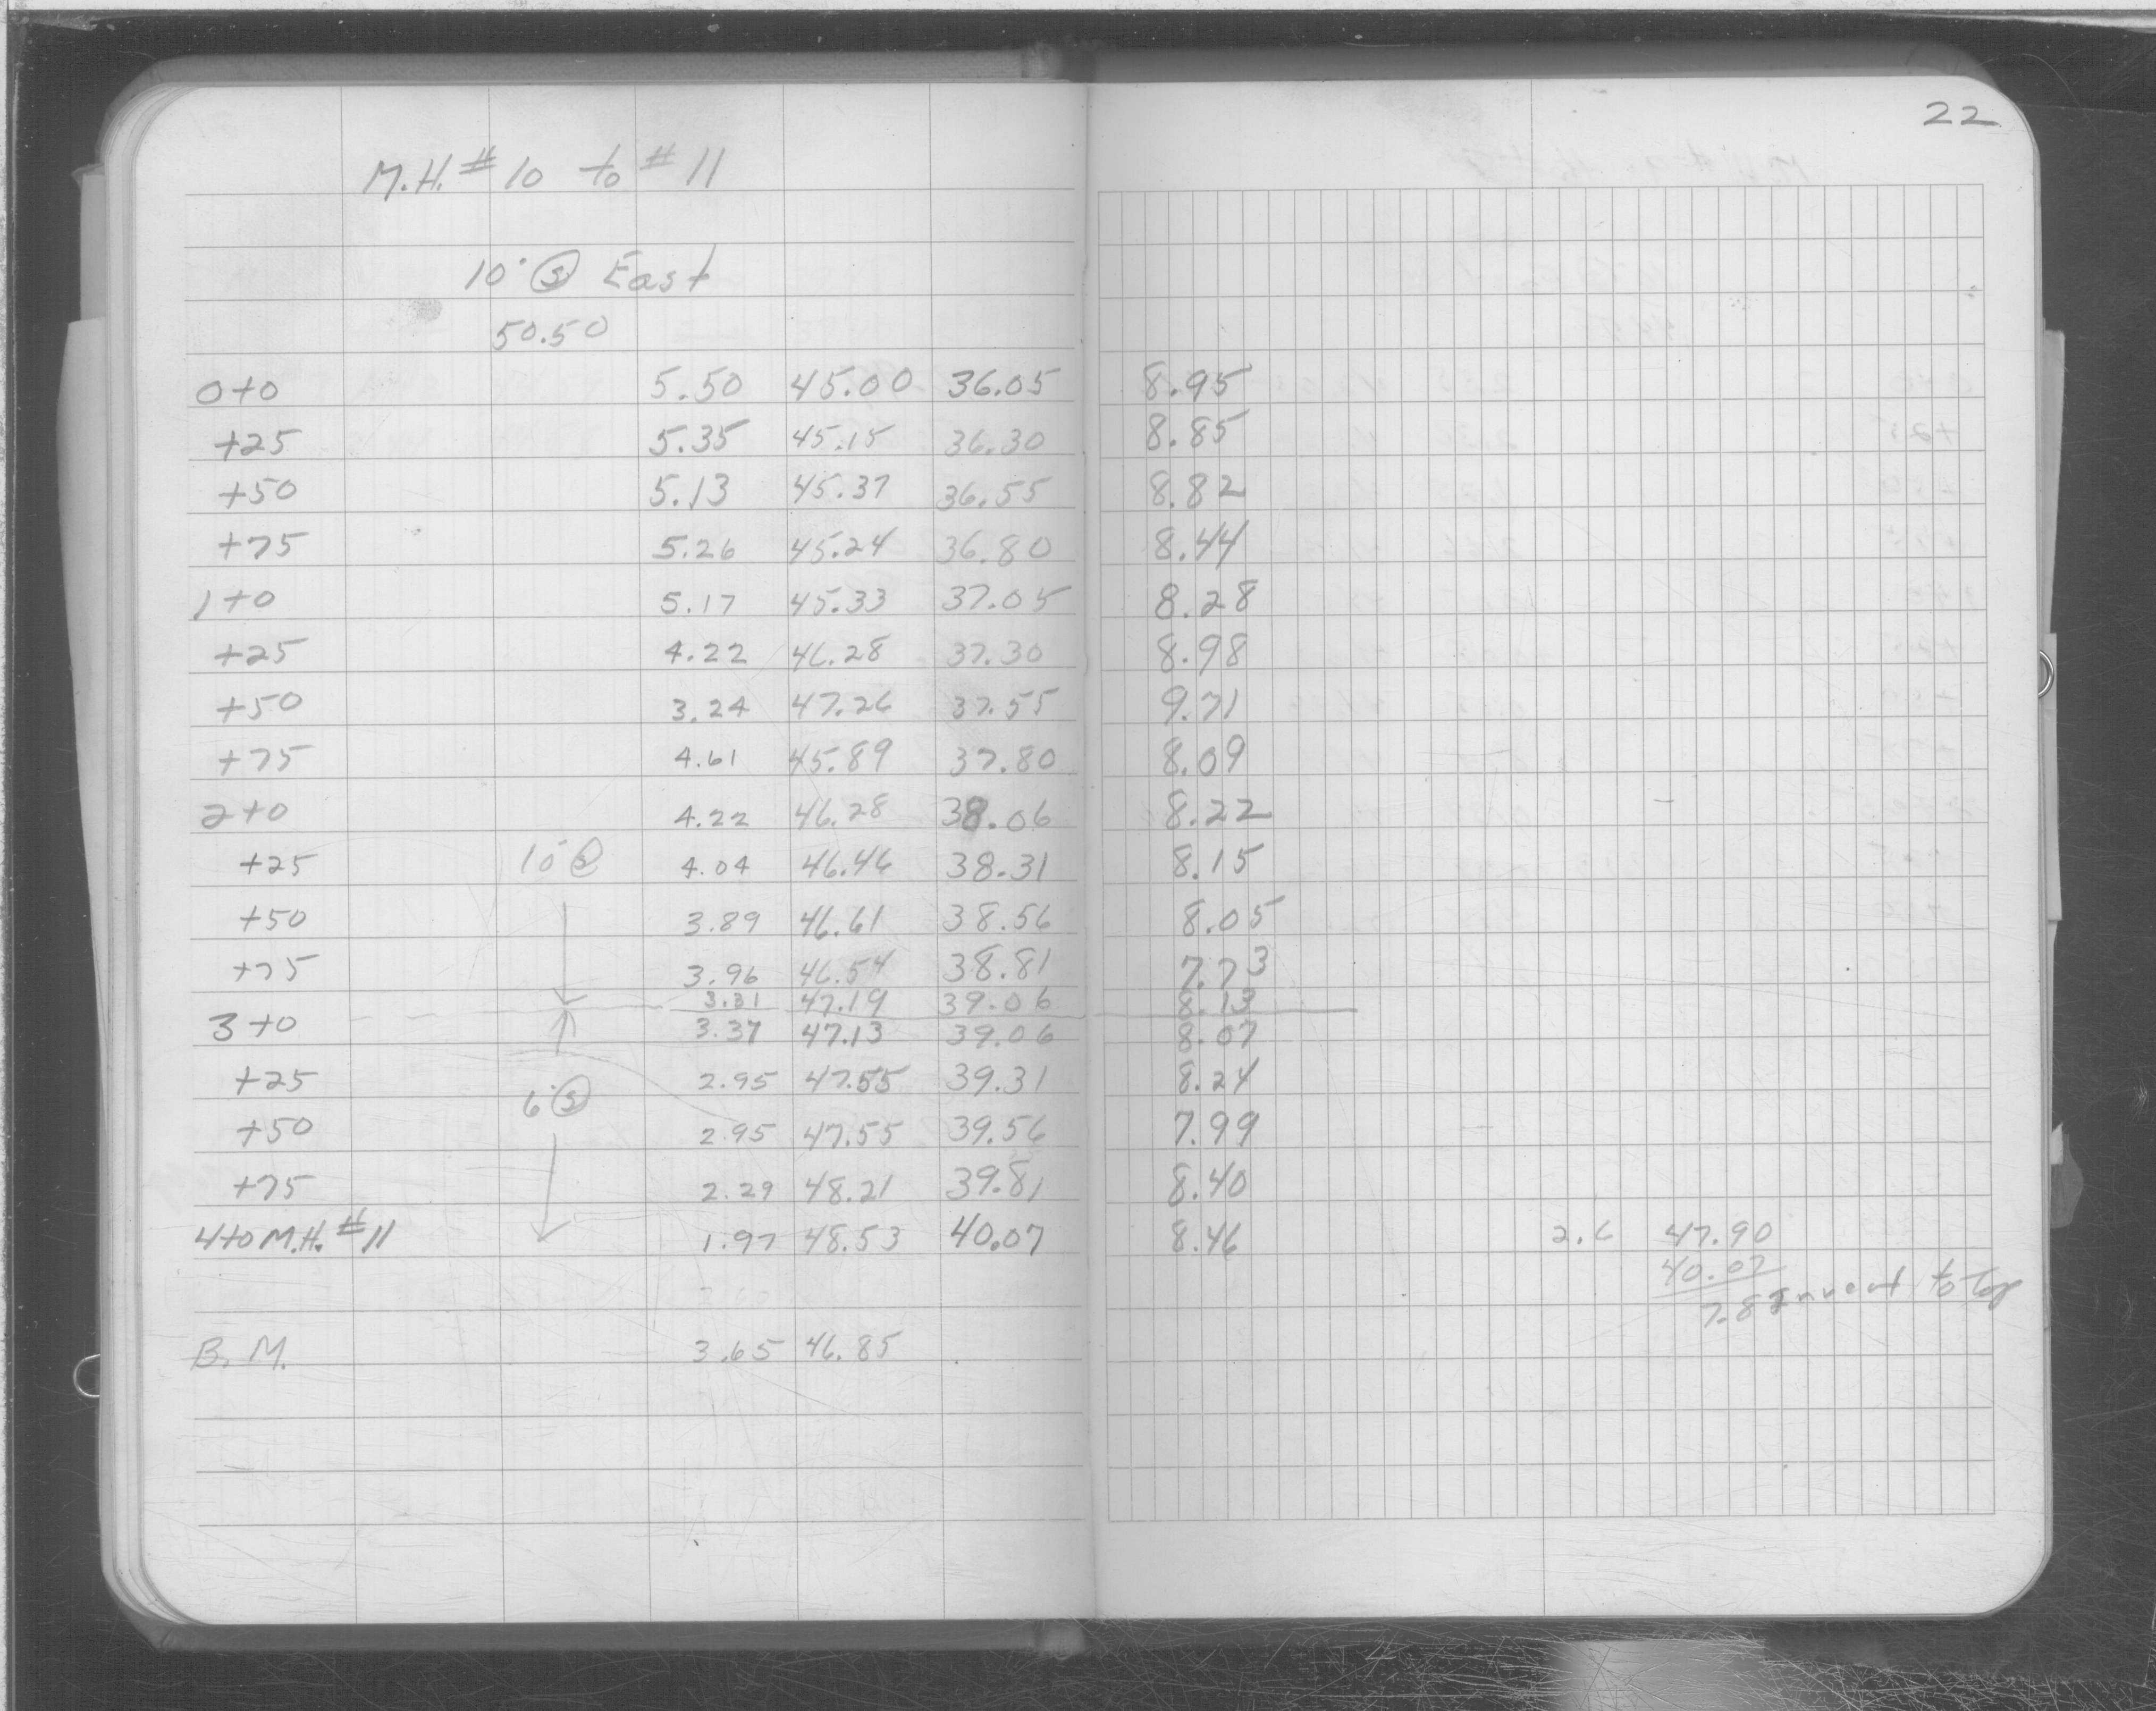 22
M.H. # 10 to # 11
10" Ⓢ East
50.50
0+0 5.50 45.00 36.05 8.95
+25 5.35 45.15 36.30 8.85
+50 5.13 45.37 36.55 8.82
+75 5.26 45.24 36.80 8.44
1+0 5.17 45.33 37.05 8.28
+25 4.22 46.28 37.30 8.98
+50 3.24 47.26 37.55 9.71
+75 4.61 45.89 37.80 8.09
2+0 4.22 46.28 38.06 8.22
+25 10" Ⓢ 4.04 46.46 38.31 8.15
+50 3.89 46.61 38.56 8.05
+75 3.96 46.54 38.81 7.73
3.31 47.19 39.06 8.13
3+0 3.37 47.13 39.06 8.07
+25 2.95 47.55 39.31 8.24
+50 6" Ⓢ 2.95 47.55 39.56 7.99
+75 2.29 48.21 39.81 8.40
4+0 M.H. # 11 1.97 48.53 40.07 8.46 2.6 47.90
40.07
7.83 Invert to top
B.M. 3.65 46.85